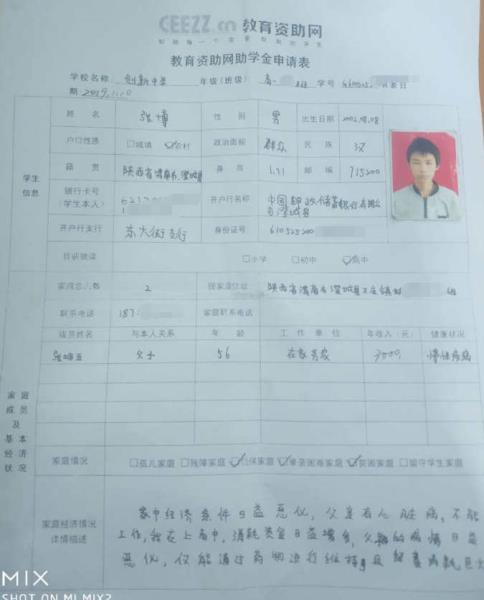 CEEZZ.cn 教育资助网
教育资助网助学金申请表
学校名称 创新中学 年级(班级) 高一 班 学号
期 2019.11.10
姓 名 张博 性 别 男 出生日期 2002.08.08
户口性质 □城镇 ☑农村 政治面貌 群众 民 族 汉
学生
信息
籍 贯 陕西省渭南市澄城县 身 高 1.71 邮 编 715200
银行卡号
(学生本人) 621 开户行名称 中国邮政储蓄银行有限公司澄城县
开户行支行 东大街支行 身份证号 610525200
目前就读 □小学 □初中 ☑高中
家庭总人数 2 现家庭住址 陕西省渭南市澄城县王庄镇 组
联系电话 187 家庭联系电话
成员姓名 与本人关系 年 龄 工 作 单 位 年收入(元) 健康状况
父子 56 在家务农 慢性疾病
家庭
成员
及
基本
经济
状况
家庭情况 □孤儿家庭 □残障家庭 ☑低保家庭 ☑单亲困难家庭 ☑贫困家庭 □留守学生家庭
家庭经济情况
详情描述
家中经济条件日益恶化,父亲有心脏病,不能
工作,我在上高中,消耗资金日益增多,父亲的病情日益
恶化,仅能通过药物进行维持
MIX
SHOT ON MI MIX2